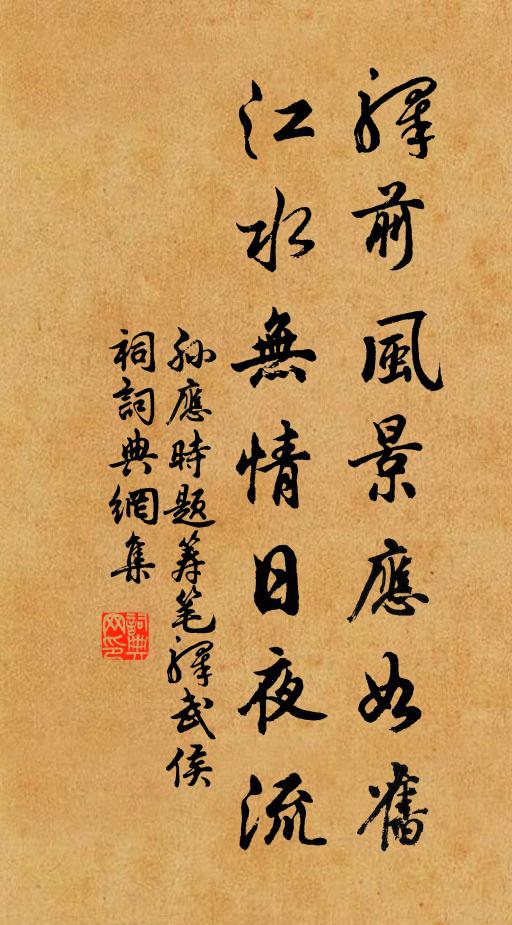 驛前風景應如舊
江水無情日夜流
孫應時題籌筆驛武侯
祠詞典網集
詞典
网印